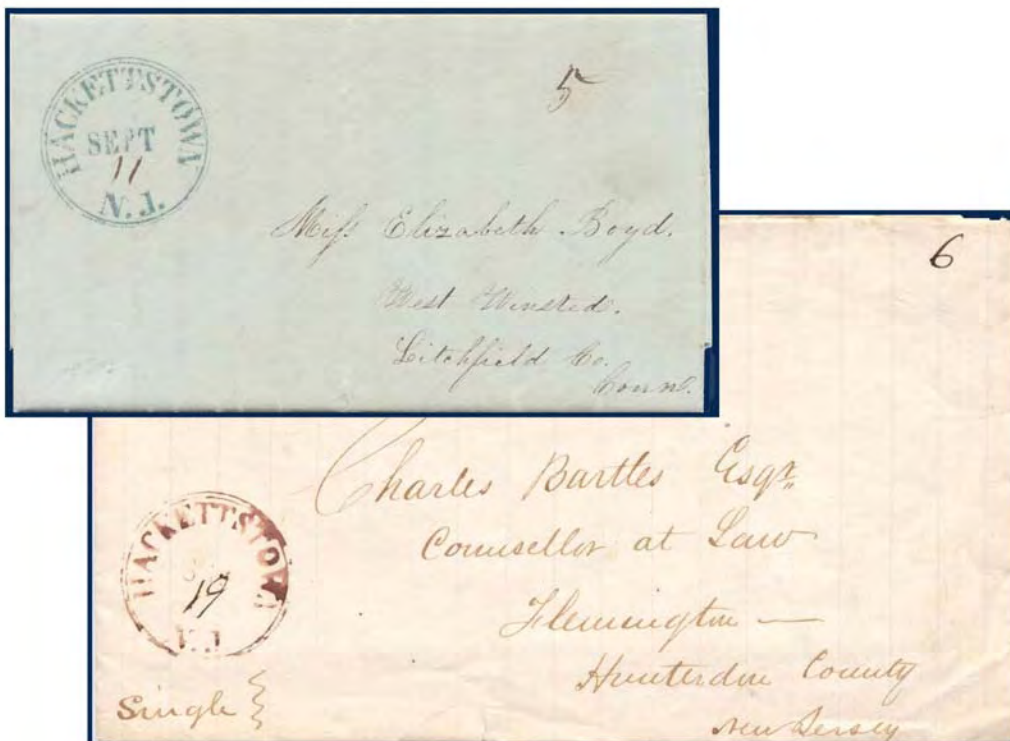 HACKETTSTOWN
SEPT
11
N.J.
5
Miss Elizabeth Boyd.
West Winsted.
Litchfield Co.
Conn.
6
Charles Bartles Esqr.
Counsellor at Law
Flemington —
Hunterdon County
New Jersey
HACKETTSTOWN
19
N.J.
Single